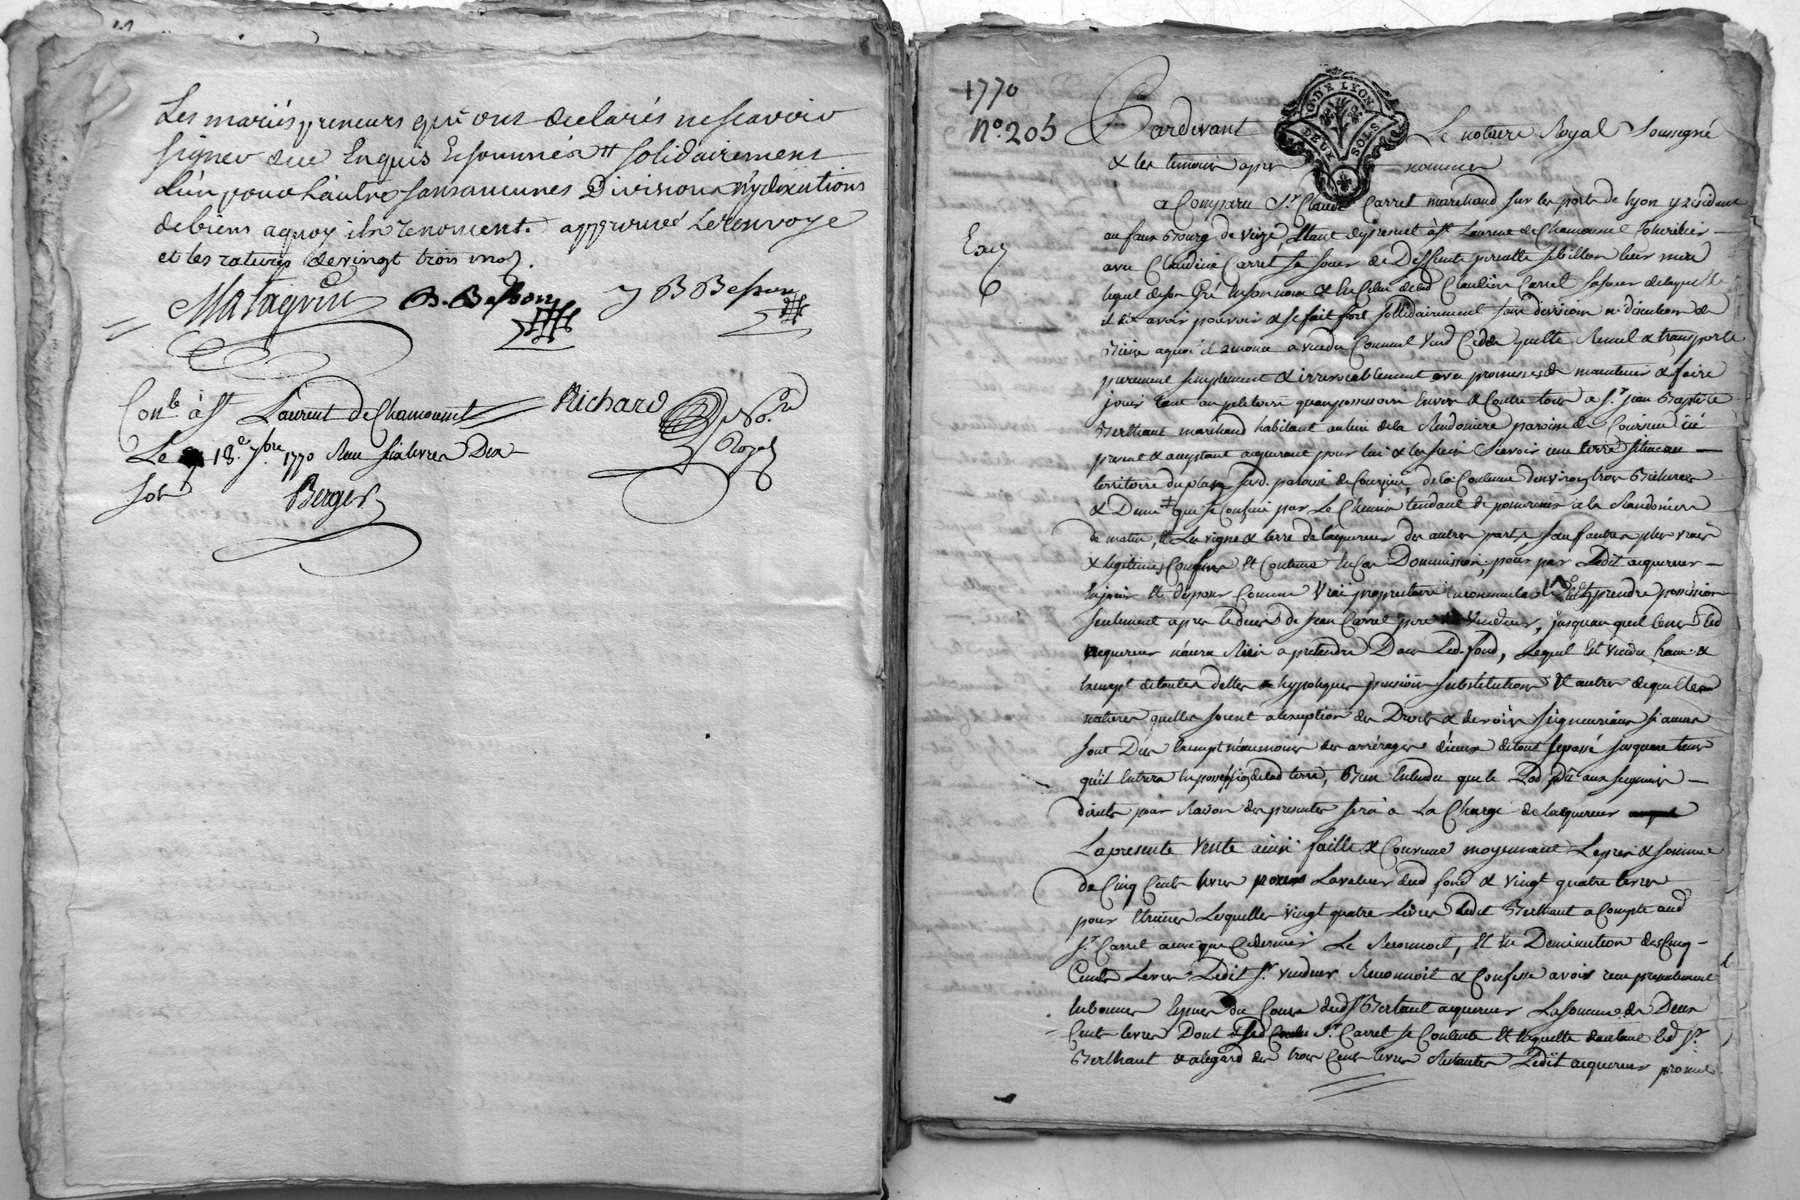 Les mariés preneurs qui ont declarés ne scavoir
signer de ce Enquis Et sommés # solidairement
L'un pour L'autre sans aucunes Divisions ny discutions
de biens a quoy ils renoncent. approuvé Le renvoye
et les ratures de vingt trois mots.
Matagrin B. Besson J B Besson
Con.le à St Laurent de Chamousset Richard
Le 18.e 7bre 1770 Reçu six livres Dix Not.re Royal
sols
Berger
1770
N.o 205
Pardevant Le notaire Royal soussigné
G. DE LYON
DEUX SOLS
& les temoins apres nommés
Exp
a Comparu Sr. Claude Carret marchand sur les ports de lyon y residant
au faux Bourg de Veize, Etant de present à St Laurent de Chamousset heritier
avec Claudine Carret sa soeur de Deffunte pierrette leur mere
lequel de son Gré En son nom & En Celui de lad Claudine Carret sa soeur de laquelle
il dit avoir pouvoir & se fait fort sollidairement sans division ni discution de
Biens a quoi il renonce a vendu Comme il Vend Cede quitte Remet & transporte
purement simplement & irrevocablement avec promesses de maintenir & faire
jouir tant au petitoire qu'au possessoire Envers & Contre tous a Sr. jean Baptiste
Berthaut marchand habitant au lieu de la Randoniere paroisse de Courzieu ici
present & acceptant acquereur pour lui & les siens Scavoir une terre situee au
territoire du plat sus.d. paroisse de Courzieu, de la Contenue d'environ trois Bicherées
& Demi + que se Confine par Le Chemin tendant de a la Randoniere
de matin, Et Les vigne & terre de l'acquereur des autres parts, sauf autres plus vrais
& legitimes Confins Et Contenue En Cas D'ommission, pour par Ledit acquereur
En jouir Et disposer Comme Vrai proprietaire incommutable Et prendre possession
seulement apres le deces de jean Carret pere Vendeur, jusqu'au quel tems led
acquereur n'aura Rien a pretendre Dans Led. fond, Lequel Est vendu franc &
Exempt de toutes dettes hypoteques pension substitutions Et autres de quelles
natures quelles soient a l'exeption des Droits & devoirs seigneuriaux si aucuns
sont Dus Exempt neanmoins des arrérages d'iceux de tout le passé jusqu'au tems
qu'il Entrera En possession de lad terre, Bien Entendu que le Lod dû aux seigneurs
directs pour Raison des presentes sera a La Charge de l'acquereur
La presente Vente ainsi faitte & Convenue moyennant Le prix & somme
de Cinq Cents livres pour La valeur dud fond & vingt quatre livres
pour Etrennes Lesquelles vingt quatre Livres Ledit Berthaut a Compté aud
Sr. Carret ainsi que Ce dernier Le Reconnoit, Et En Deminution des Cinq
Cents Livres Ledit Sr. vendeur Reconnoit & Confesse avoir reçu presentement
En bonnes Especes du Cours dud Sr Bertaut acquereur La somme de Deux
Cents livres Dont Led Sr. Carret se Contente Et En quitte led Sr.
Berthaut & a l'egard des trois Cents livres Restantes Ledit acquereur promet